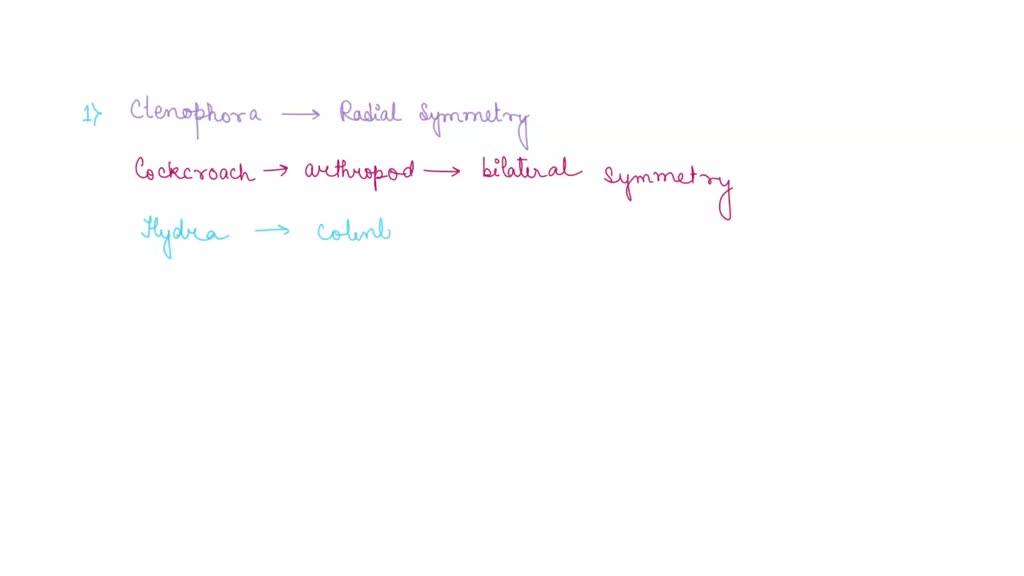 1) Ctenophora → Radial Symmetry
Cockcroach → arthropod → bilateral symmetry
Hydra → colent